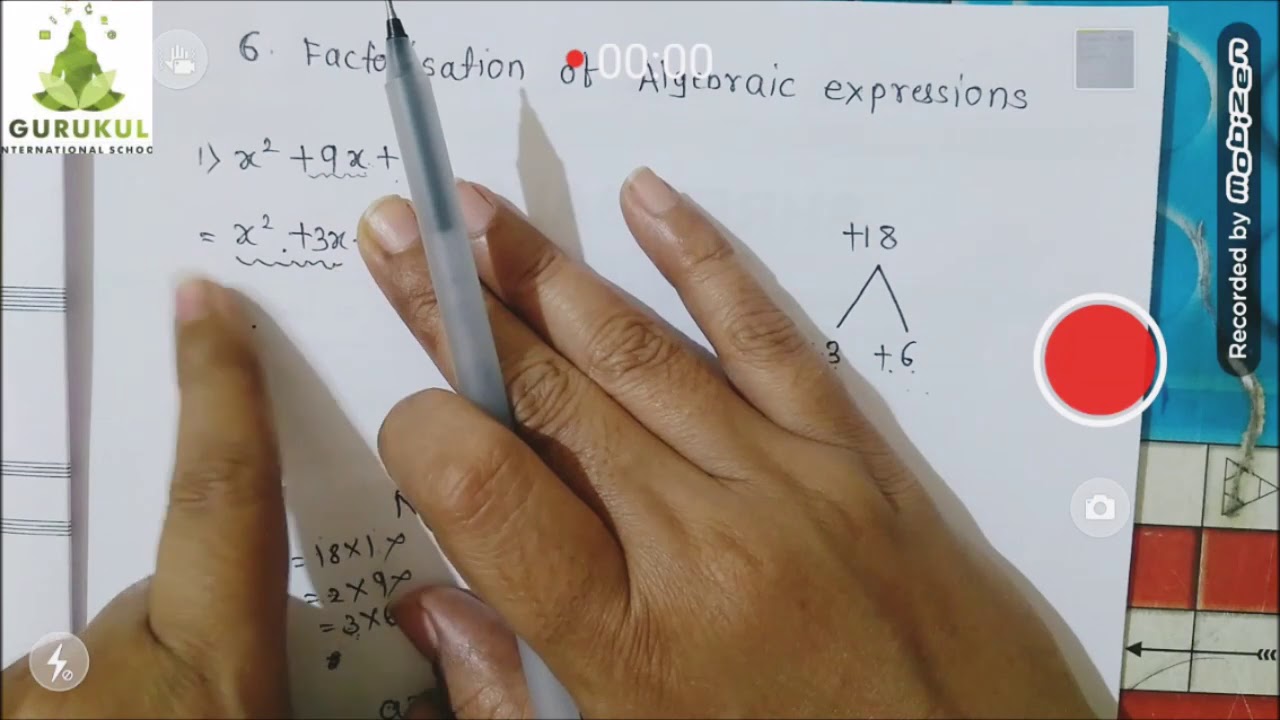 GURUKUL
NTERNATIONAL SCHOO
6. Factorisation of Algebraic expressions
00:00
1) x² + 9x +
= x² + 3x
+18
3 +6
= 18 × 1 ×
= 2 × 9 ×
= 3 × 6
Recorded by mobizen